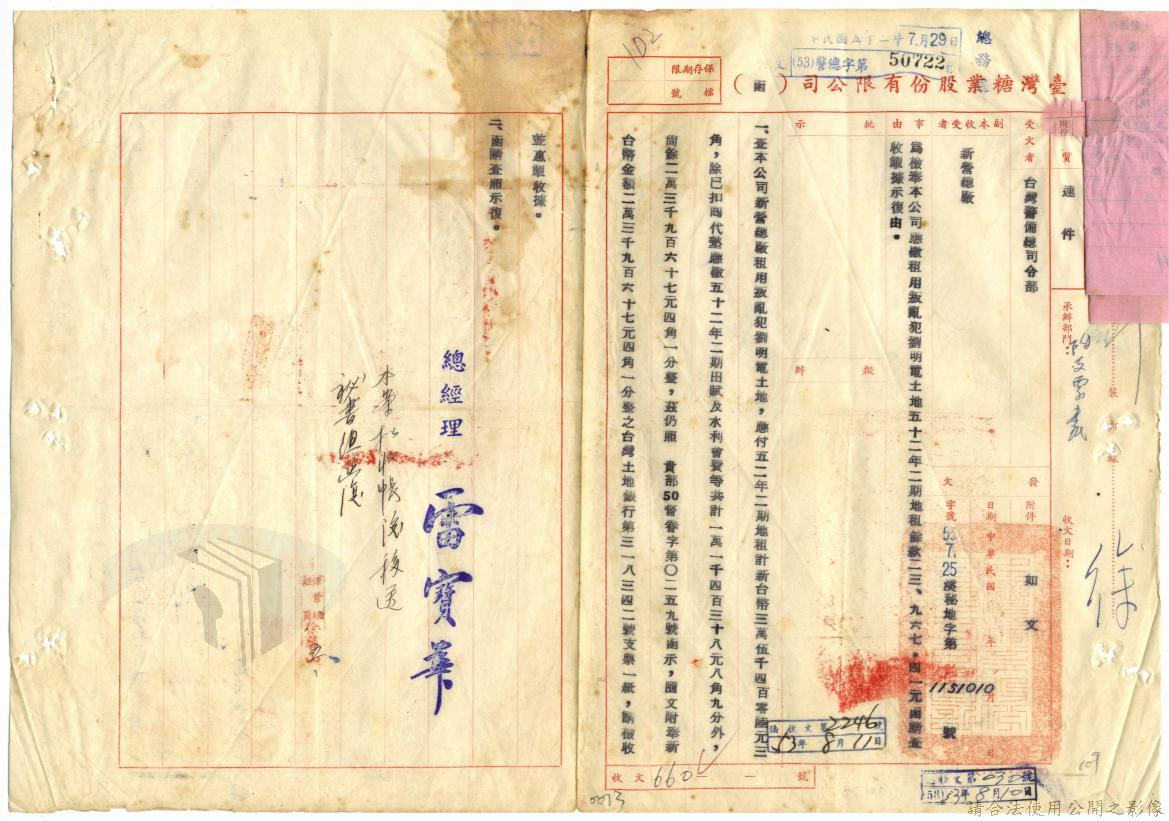 臺灣糖業股份有限公司（函）
保存期限
檔號
102
中華民國五十二年7月29日
(53)警總字第50722號
總務
速件
受文者
台灣警備總司令部
副本收受者
新營總廠
事由
為檢奉本公司應繳租用叛亂犯劉明電土地五十二年二期地租餘款二三、九六七・四一元函請查
收製據示復由。
批示
擬辦
發文
附件
如文
日期
中華民國 年 月 日
字號
53.7.25溪秘地字第
1151010
號
承辦部門：
附支票壹
收文日期：
裝
訂
線
一、查本公司新營總廠租用叛亂犯劉明電土地，應付五二年二期地租計新台幣三萬伍千四百零陸元三
角，除已扣回代墊應繳五十二年二期田賦及水利會費等共計一萬一千四百三十八元八角九分外，
尚餘二萬三千九百六十七元四角一分整，茲仍照　貴部50督眷字第〇二五九號函示，隨文附奉新
台幣金額二萬三千九百六十七元四角一分整之台灣土地銀行第三一八三四二號支票一紙，請檢收
法收文第2246號
53年8月11日
收文660號
收文第030號
(53)53年8月10日
109
0073
並惠製收據。
二、函請查照示復。
總經理　雷寶華
本案收帳後移送
秘書組並復
請合法使用公開之影像